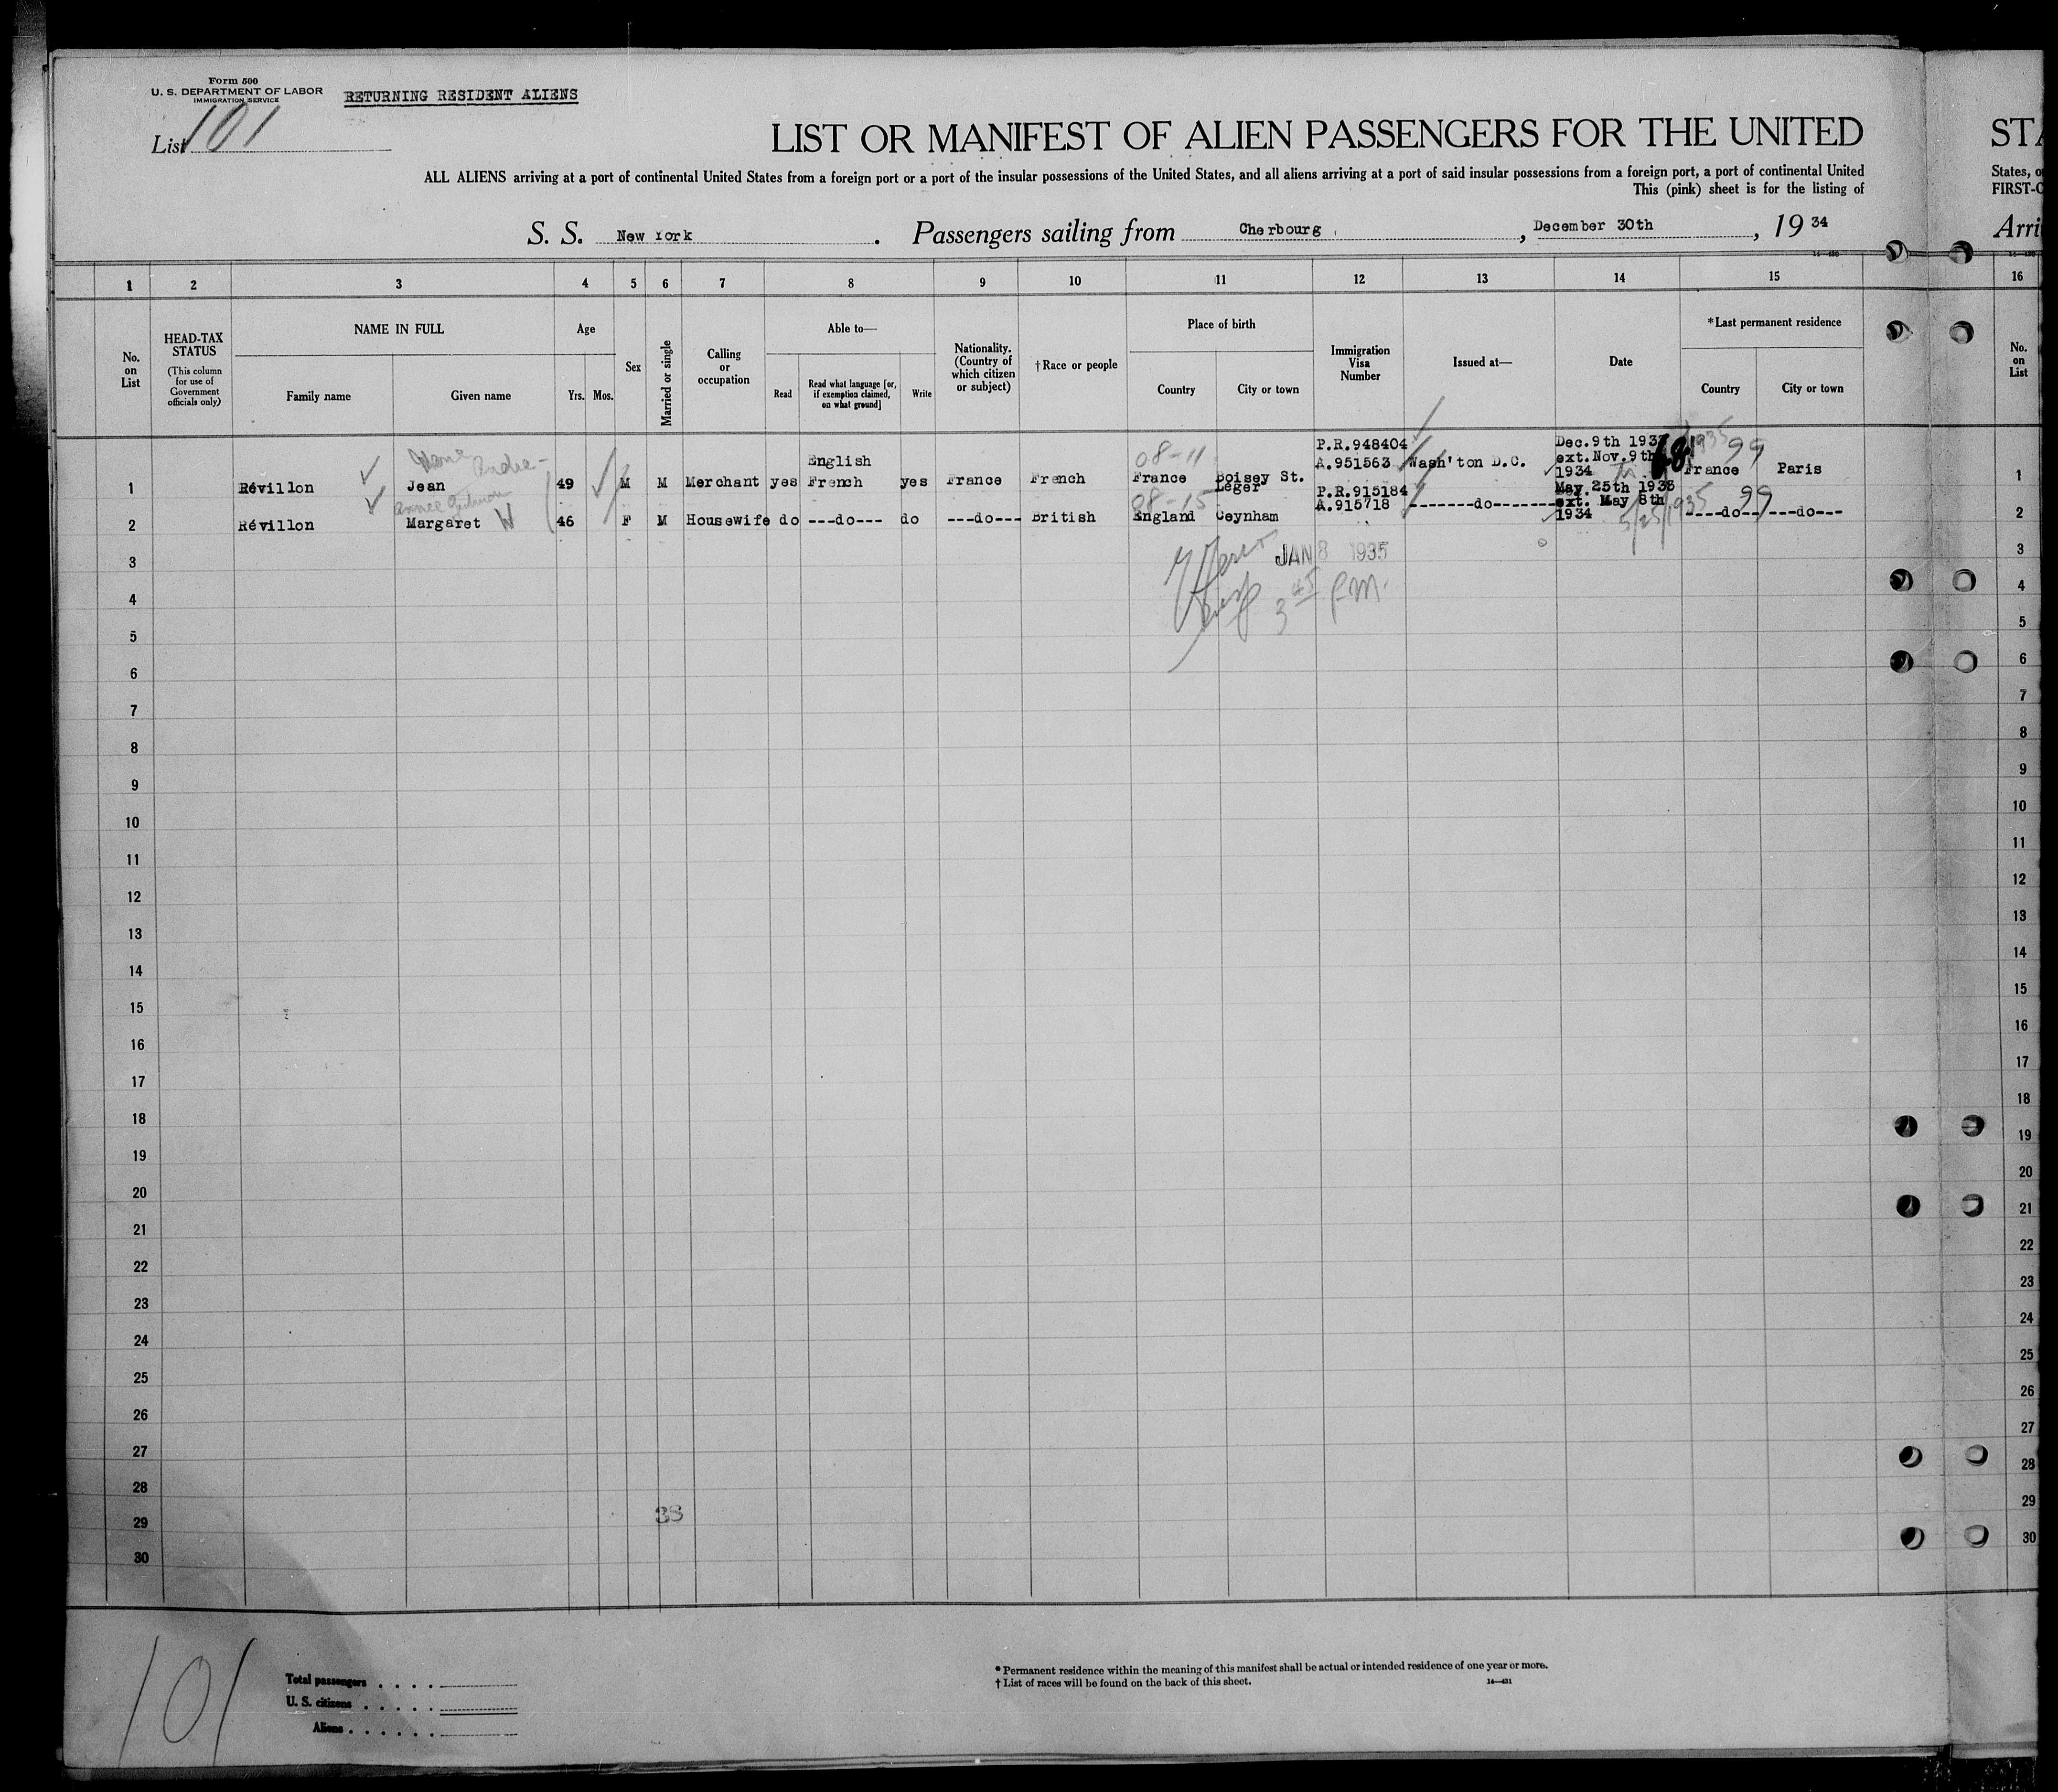 Form 500
U. S. DEPARTMENT OF LABOR
IMMIGRATION SERVICE
RETURNING RESIDENT ALIENS
List 101
LIST OR MANIFEST OF ALIEN PASSENGERS FOR THE UNITED
STA
ALL ALIENS arriving at a port of continental United States from a foreign port or a port of the insular possessions of the United States, and all aliens arriving at a port of said insular possessions from a foreign port, a port of continental United
States, o
This (pink) sheet is for the listing of
FIRST-C
S. S. New York. Passengers sailing from Cherbourg, December 30th, 1934
Arri
1 2 3 4 5 6 7 8 9 10 11 12 13 14 15 16
No. on List
HEAD-TAX STATUS
(This column for use of Government officials only)
NAME IN FULL
Family name
Given name
Age
Yrs. Mos.
Sex
Married or single
Calling or occupation
Able to—
Read
Read what language [or, if exemption claimed, on what ground]
Write
Nationality. (Country of which citizen or subject)
†Race or people
Place of birth
Country
City or town
Immigration Visa Number
Issued at—
Date
*Last permanent residence
Country
City or town
No. on List
1 Révillon Jean Andre 49 M M Merchant yes English French yes France French 08-11 France Boisey St. Leger P.R.948404 A.951563 Wash'ton D.C. Dec.9th ext.Nov.9th 1934 France 99 Paris 1
2 Révillon Margaret W 46 F M Housewife do ---do--- do ---do--- British 08-15 England Ceynham P.R.915184 A.915718 -------do------- May 25th 1933 ext. May 8th 1934 5/25/1935 ----do-- 99 ---do--- 2
JAN 8 1935
3 45 P.M.
3 3
4 4
5 5
6 6
7 7
8 8
9 9
10 10
11 11
12 12
13 13
14 14
15 15
16 16
17 17
18 18
19 19
20 20
21 21
22 22
23 23
24 24
25 25
26 26
27 27
28 28
33
29 29
30 30
101
Total passengers
U. S. citizens
Aliens
* Permanent residence within the meaning of this manifest shall be actual or intended residence of one year or more.
† List of races will be found on the back of this sheet.
14—431